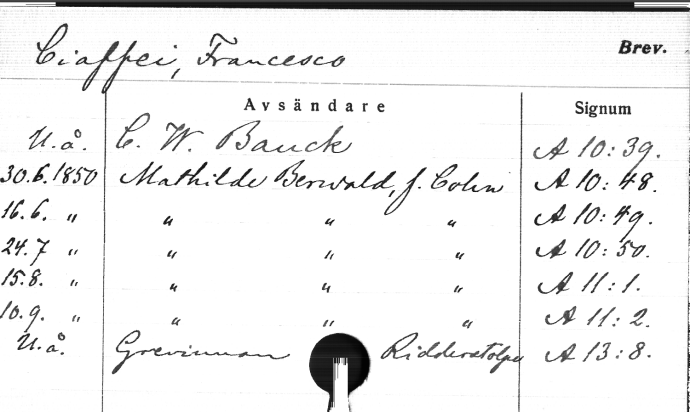 Ciaffei, Francesco Brev.
Avsändare Signum
U.å. C. W. Bauck A 10:39.
30.6.1850 Mathilde Berwald, f. Cohn A 10:48.
16.6. " " " " A 10:49.
24.7 " " " " A 10:50.
15.8. " " " " A 11:1.
10.9. " " " " A 11:2.
U.å. Grevinnan Ridderstolpe A 13:8.